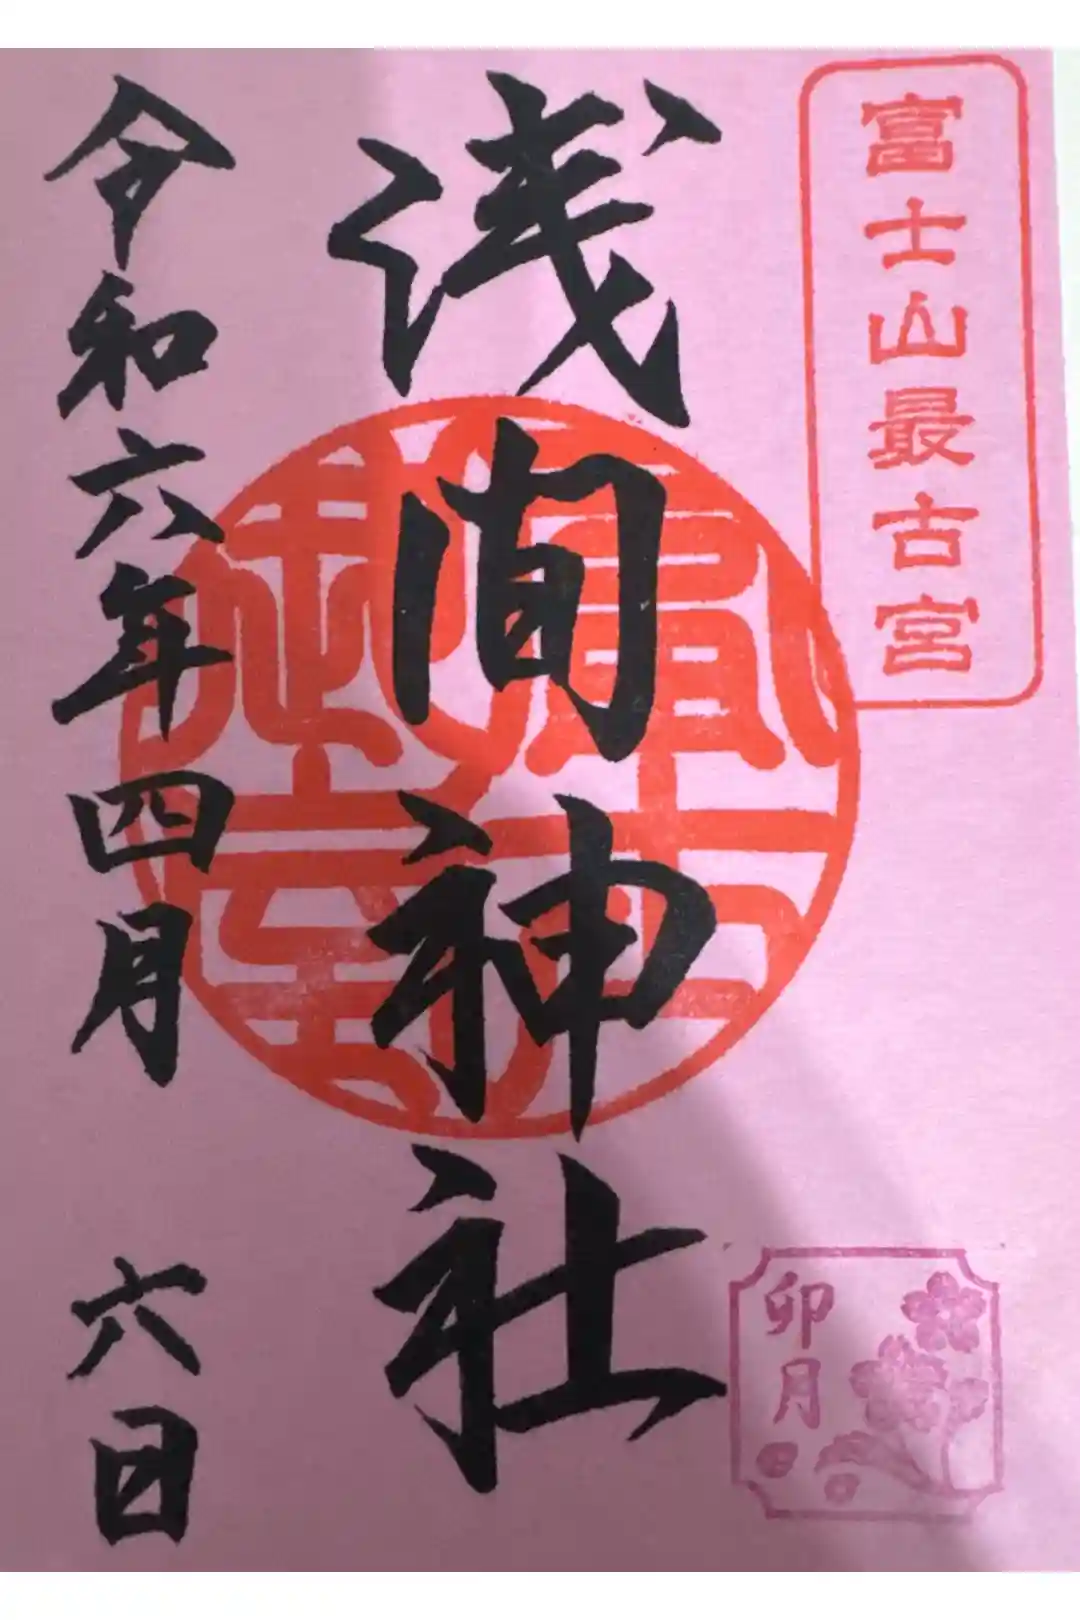 富士山最古宮
浅間神社
令和六年四月 六日
卯月